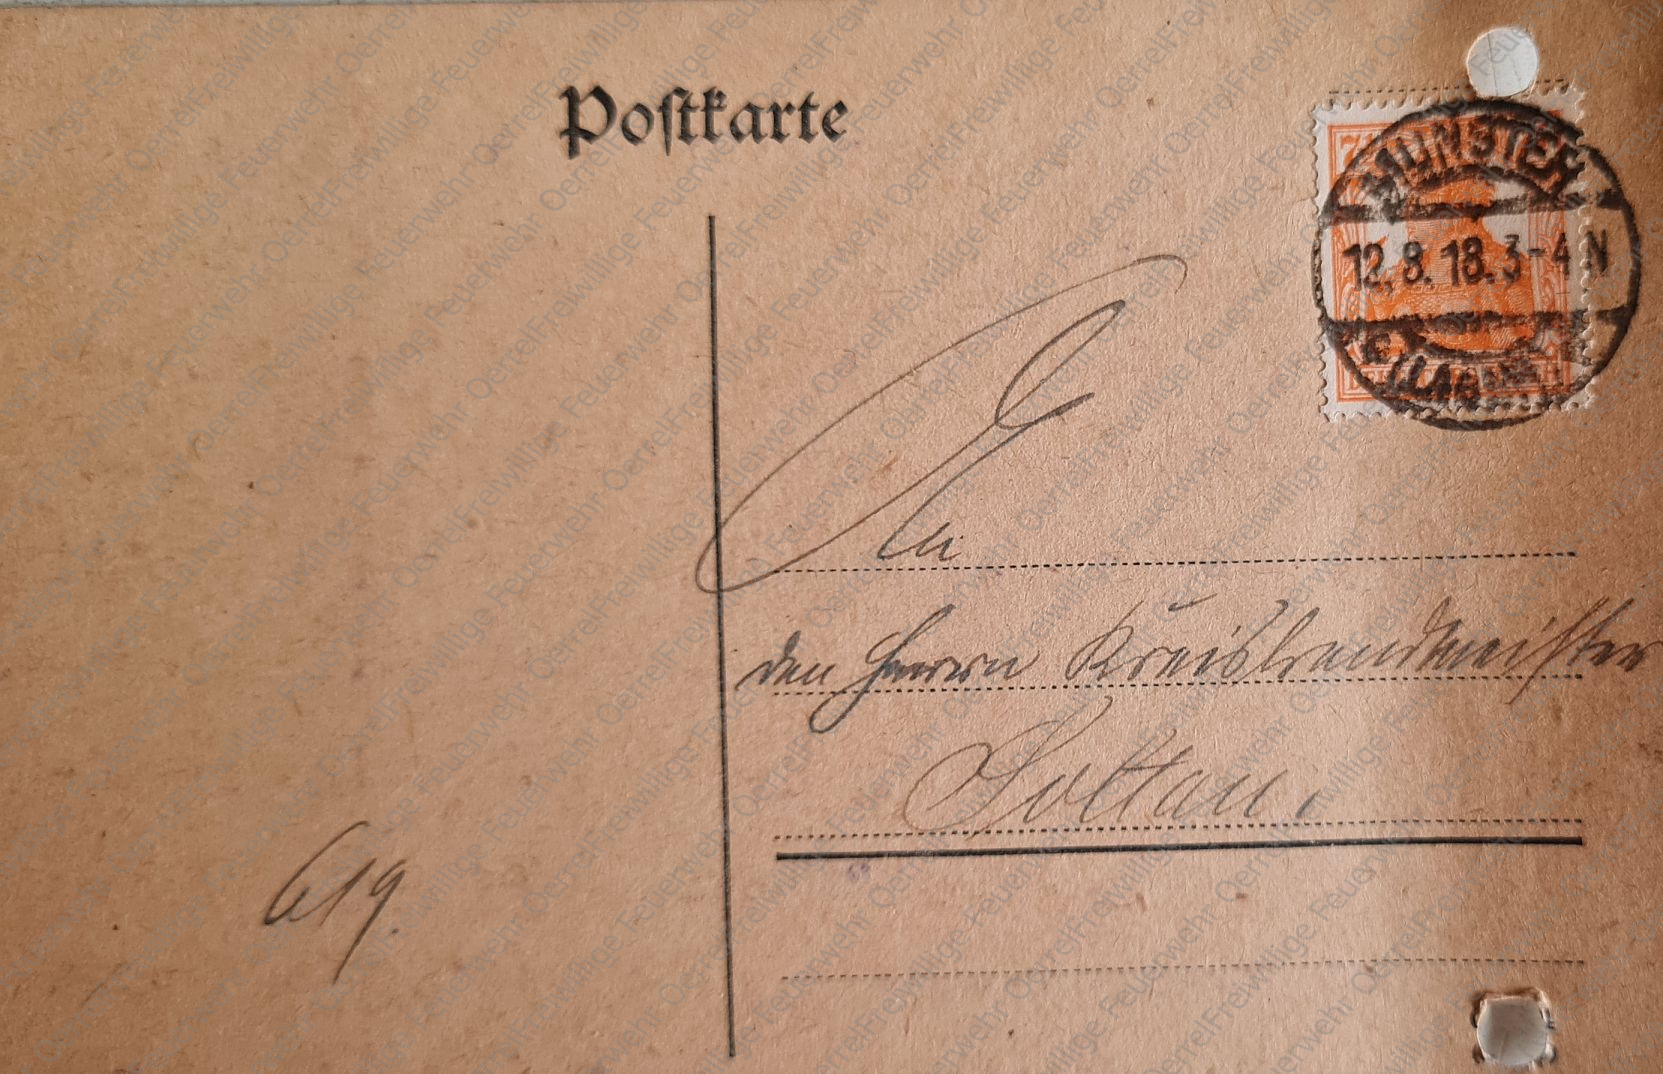 Postkarte
7½
MUNSTER
12.8.18.3-4 N
(LAGER)
An
den Herrn Kreisbrandmeister
Soltau.
619.
Freiwillige Feuerwehr Oerrel